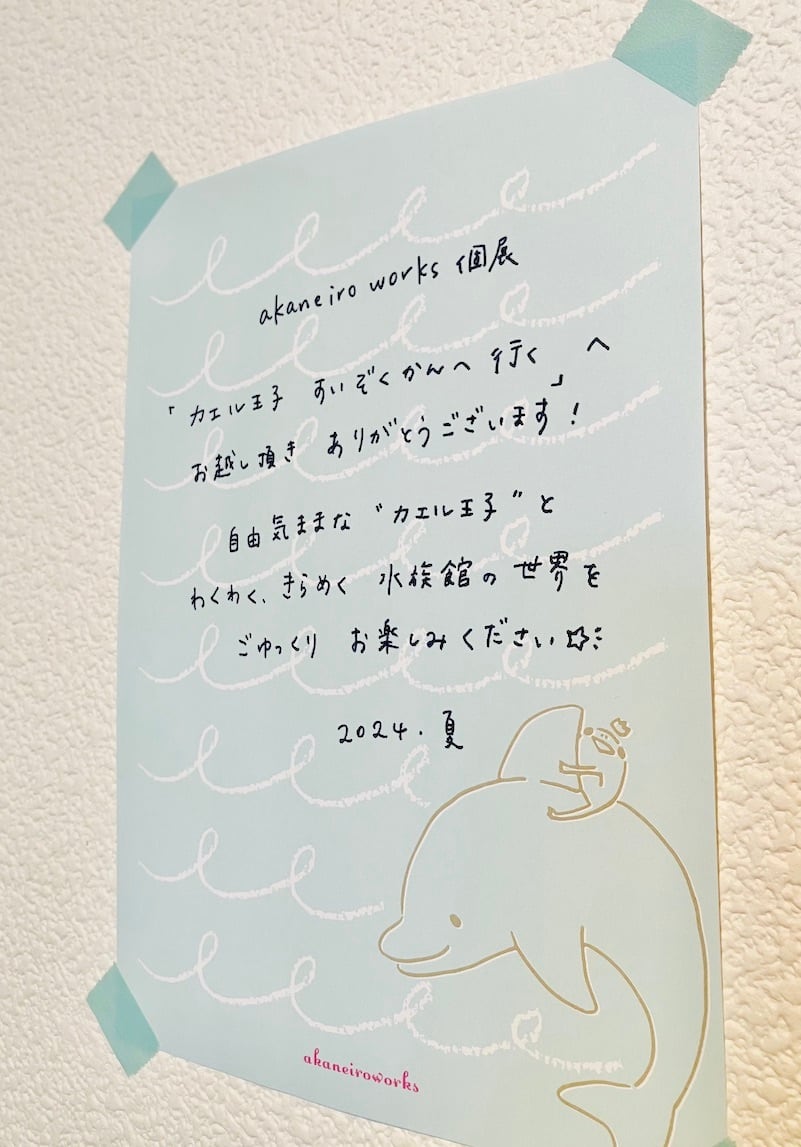 akaneiro works 個展
「カエル王子 すいぞくかんへ 行く」へ
お越し頂き ありがとうございます！
自由気ままな “カエル王子” と
わくわく、きらめく 水族館の 世界を
ごゆっくり お楽しみください☆
2024.夏
akaneiroworks